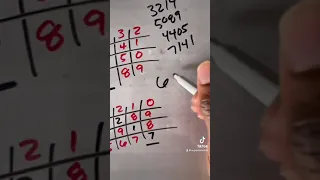 3214
5089
4405
7141
6
3 2
4 1
5 0
8 9
2 1 0
2 8 9
9 1 8
6 7 7
TikTok